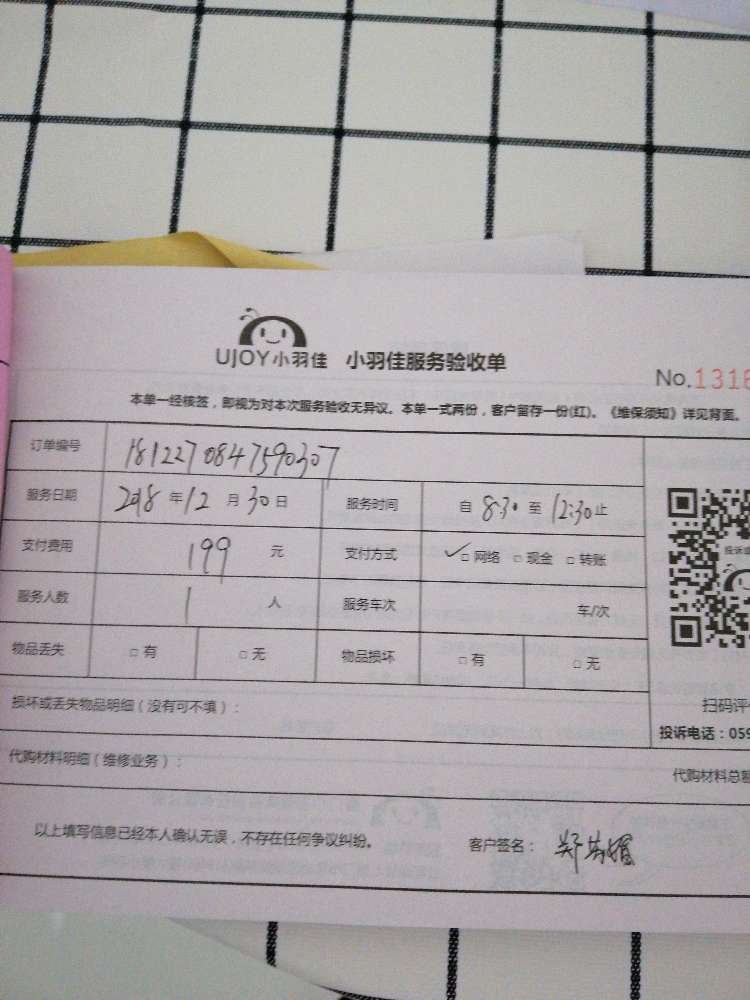 UJOY小羽佳 小羽佳服务验收单
No.1316
本单一经核签，即视为对本次服务验收无异议。本单一式两份，客户留存一份(红)。《维保须知》详见背面。
订单编号 1812270847590307
服务日期 2018年12月30日 服务时间 自8:30至12:30止
支付费用 199元 支付方式 ✓□网络 □现金 □转账
服务人数 1人 服务车次 车/次
物品丢失 □有 □无 物品损坏 □有 □无
损坏或丢失物品明细（没有可不填）：
扫码评
投诉电话：059
代购材料明细（维修业务）：
代购材料总额
以上填写信息已经本人确认无误，不存在任何争议纠纷。 客户签名：郑